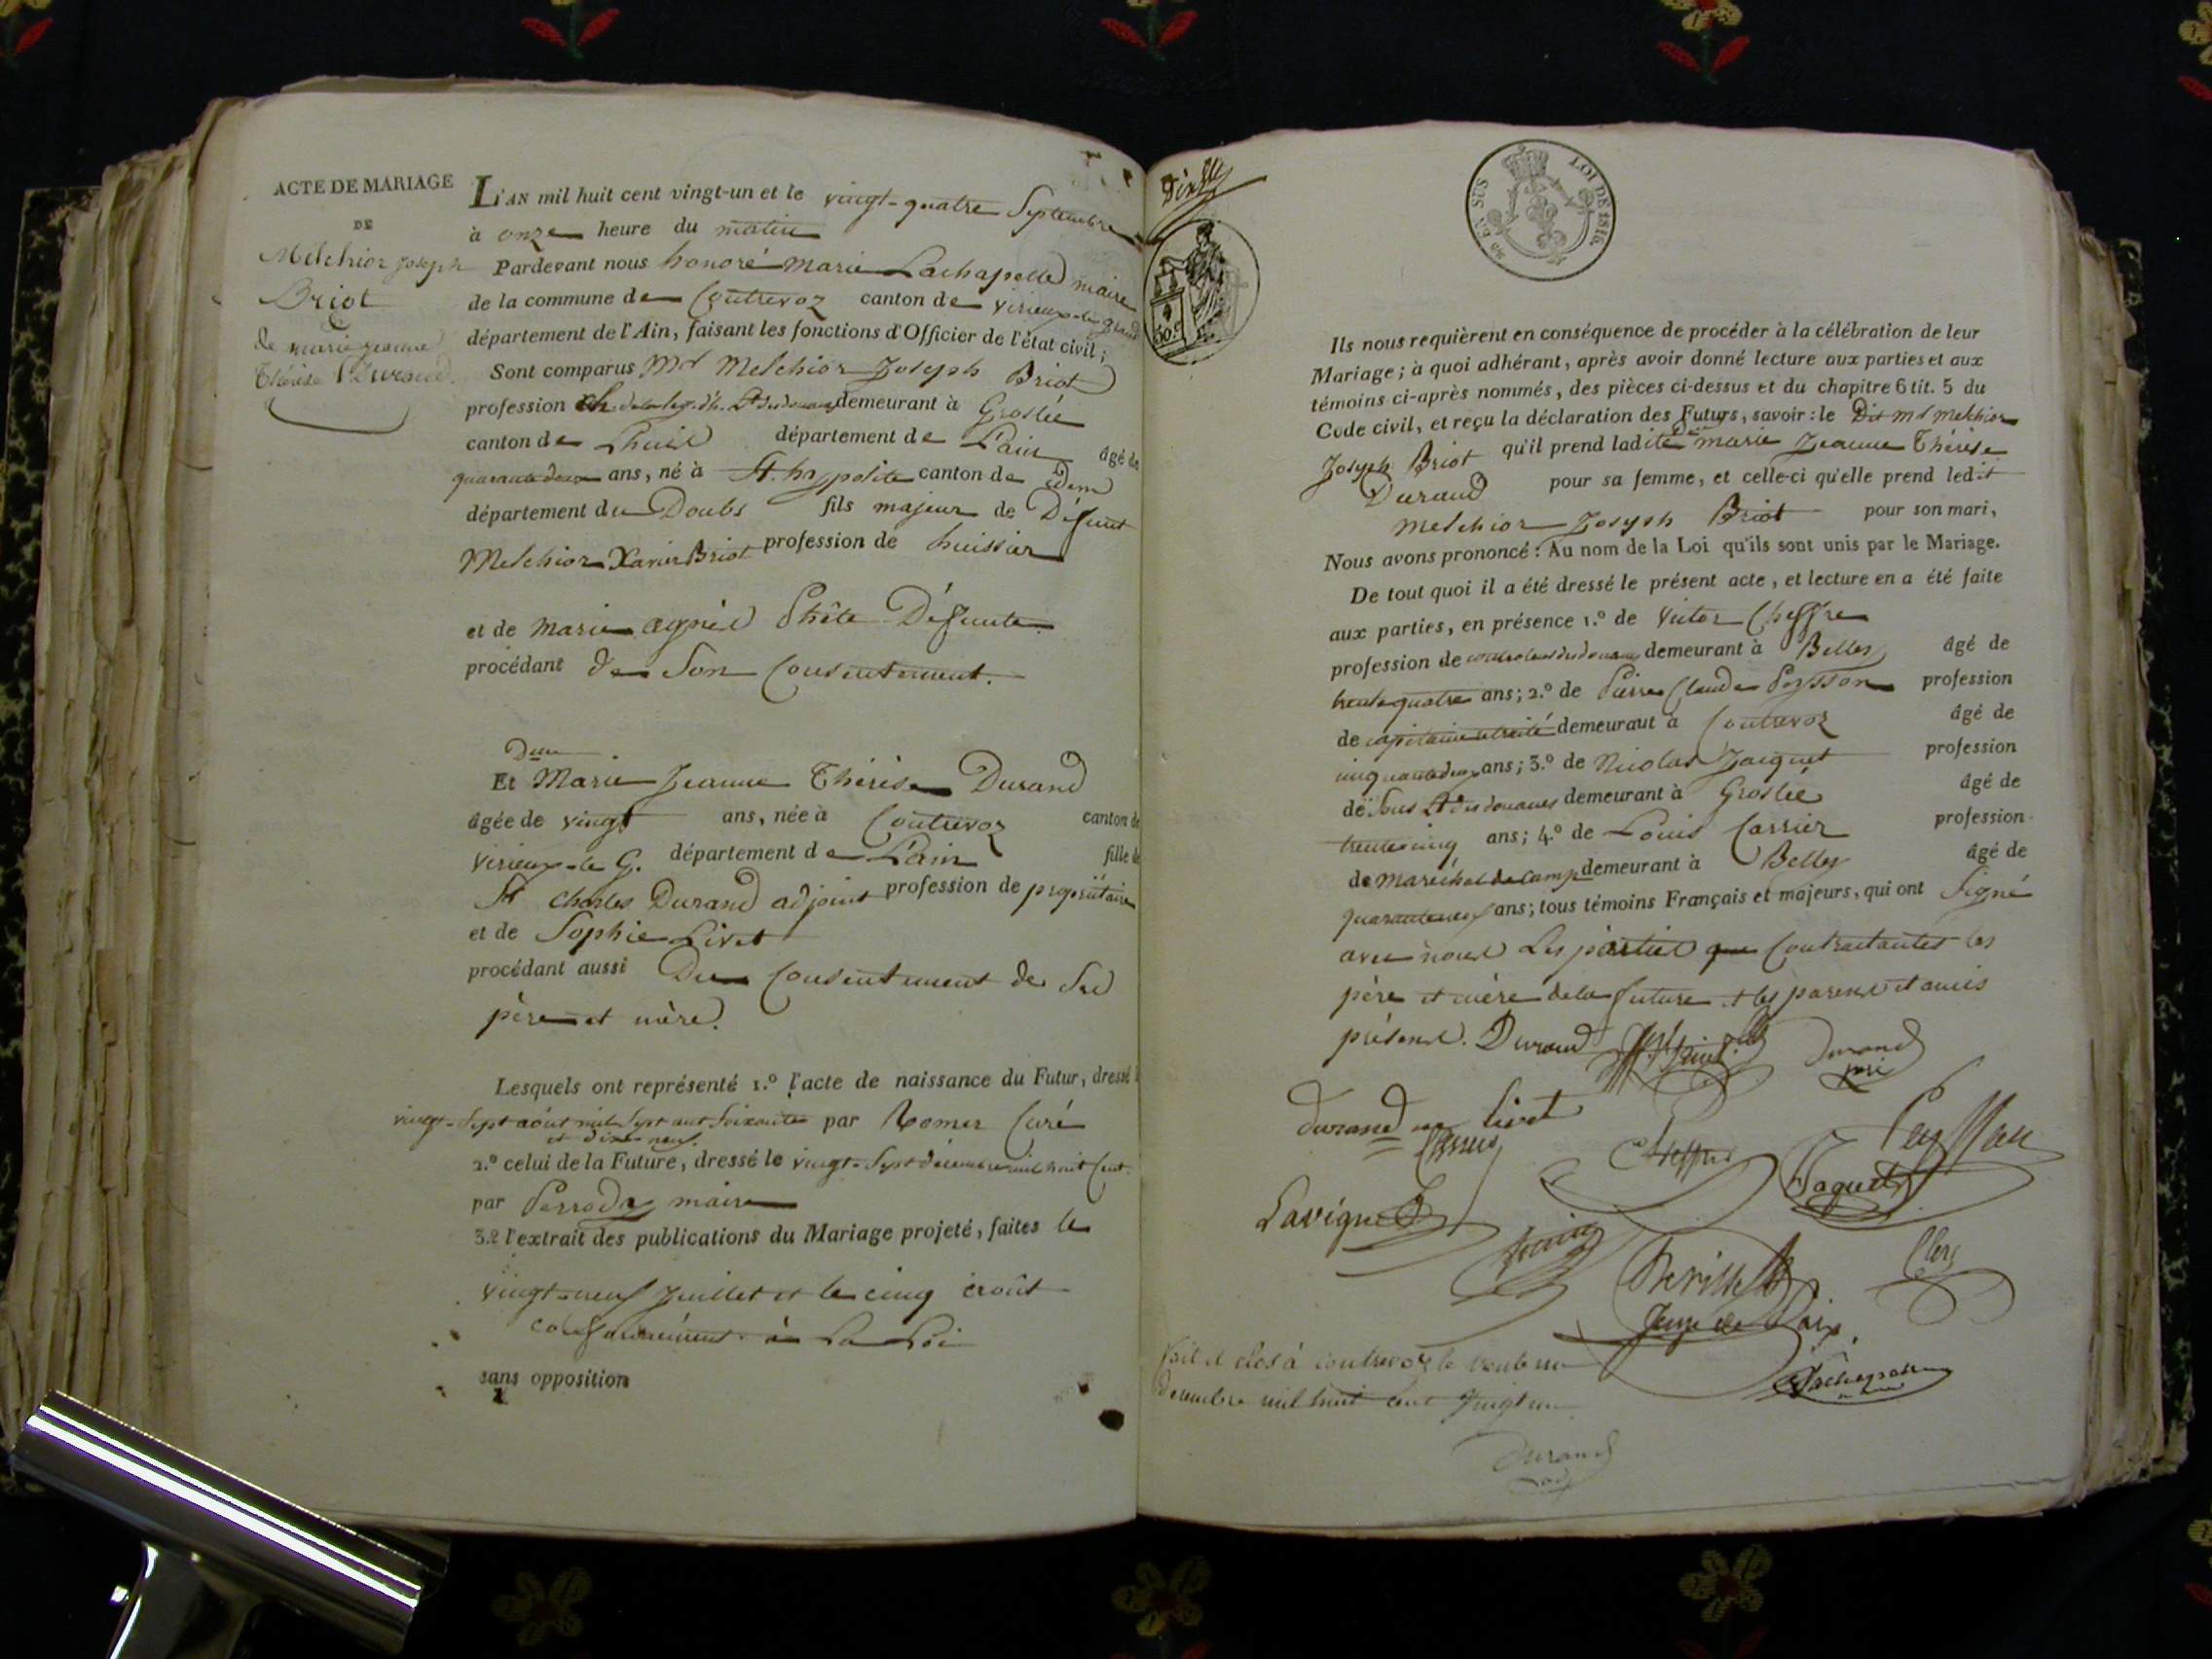 ACTE DE MARIAGE
DE
Melchior Joseph
Briot
de marie jeanne
thérèse Durand.
L'AN mil huit cent vingt-un et le vingt-quatre Septembre
à onze heure du matin
Pardevant nous honoré marie Lachapelle maire
de la commune de Contrevoz canton de virieux-le-grand
département de l'Ain, faisant les fonctions d'Officier de l'état civil;
Sont comparus Mr Melchior Joseph Briot
profession ch. de la leg. d'h. Lt des douanes demeurant à Groslée
canton de Lhuis département de L'ain âgé de
quarante deux ans, né à St. hyppolite canton de idem
département du Doubs fils majeur de Défunt
Melchior Xavier Briot profession de huissier
et de marie agnès Défunte.
procédant de Son Consentement.
Dlle
Et Marie Jeanne Thérèse Durand
âgée de vingt ans, née à Contrevoz canton de
Virieux-le G. département de L'ain fille de
Sr Charles Durand adjoint profession de propriétaire
et de Sophie Livet
procédant aussi Du Consentement de Ses
père et mère.
Lesquels ont représenté 1.º l'acte de naissance du Futur, dressé le
vingt-Sept août mil Sept cent Soixante par Romer Curé
et dix-neuf.
2.º celui de la Future, dressé le vingt-Sept décembre mil huit Cent.
par Perrody maire
3.º l'extrait des publications du Mariage projeté, faites le
vingt-neuf Juillet et le cinq août
conformément à La Loi
sans opposition
LOI DE 1816.
EN SUS
50.c
Ils nous requièrent en conséquence de procéder à la célébration de leur
Mariage; à quoi adhérant, après avoir donné lecture aux parties et aux
témoins ci-après nommés, des pièces ci-dessus et du chapitre 6 tit. 5 du
Code civil, et reçu la déclaration des Futurs, savoir: le Dit mr melchior
Joseph Briot qu'il prend ladite Dlle marie Jeanne Thérèse
Durand pour sa femme, et celle-ci qu'elle prend ledit
melchior Joseph Briot pour son mari,
Nous avons prononcé: Au nom de la Loi qu'ils sont unis par le Mariage.
De tout quoi il a été dressé le présent acte, et lecture en a été faite
aux parties, en présence 1.º de Victor Cheffre
profession de controleur des douanes demeurant à Belley âgé de
trente quatre ans; 2.º de Pierre Claude Peysson profession
de capitaine retraité demeurant à Contrevoz âgé de
cinquante deux ans; 3.º de Nicolas Jacquet profession
de Sous Lt des douanes demeurant à Groslée âgé de
trente cinq ans; 4.º de Louis Carrier profession
de maréchal de camp demeurant à Belley âgé de
quarante neuf ans; tous témoins Français et majeurs, qui ont Signé
avec nous Les parties que Contractantes les
père et mère de la future et les parens et amis
présens. Durand Durand
père
durand née Livet
Peysson
Lavigne Jaquet
Clerc
Juge de Paix
Lachapelle
fait et clos à contrevoz le trente un
décembre mil huit cent vingt un
Durand